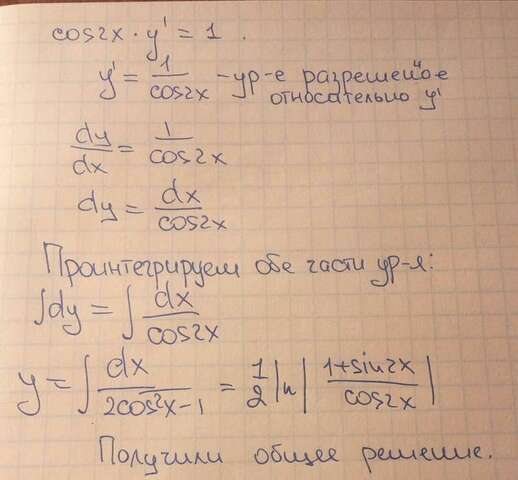 cos2x · y' = 1 .
y' = 1/cos2x - ур-е разрешенное
относательно y'
dy/dx = 1/cos2x
dy = dx/cos2x
Проинтегрируем обе части ур-я:
∫dy = ∫ dx/cos2x
y = ∫ dx/(2cos²x-1) = 1/2 ln | (1+sin2x)/cos2x |
Получили общее решение.